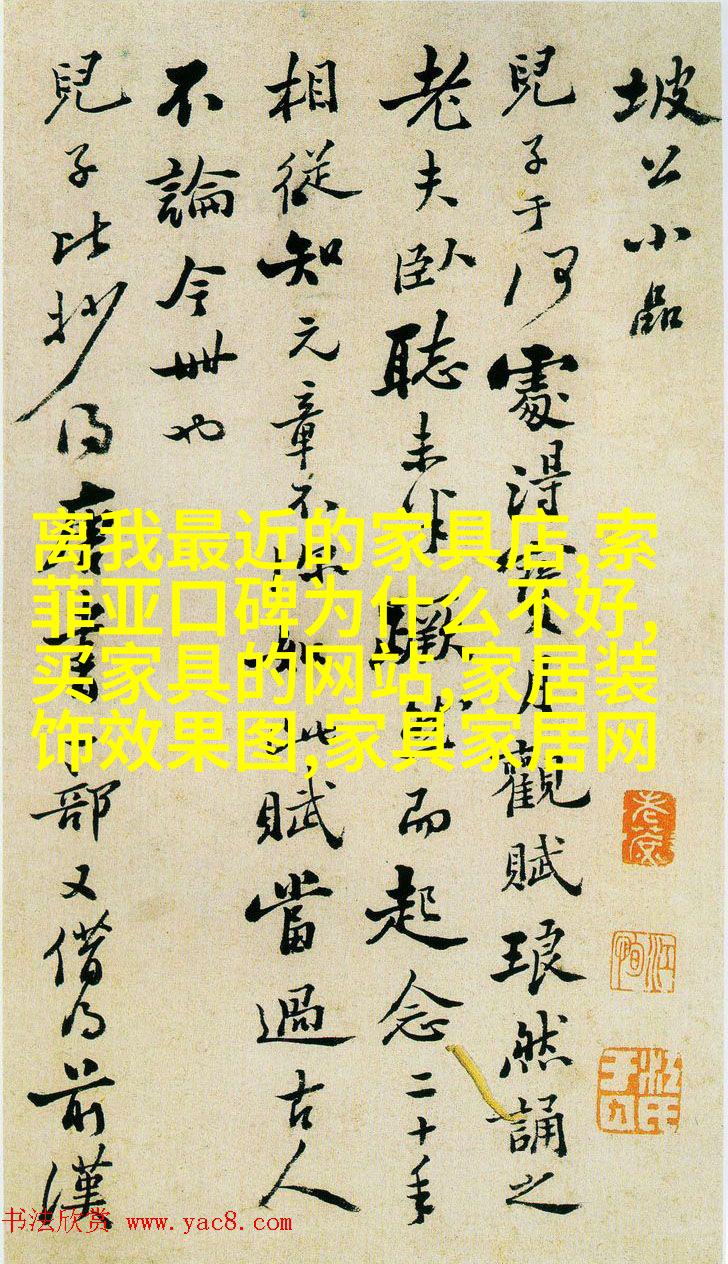 坡公小品
兒子于何處得寶月觀賦琅然誦之
老夫臥聽未半蹶然而起念二十年
相從知元章不此賦當過古人
不論今世也
兒子比抄得唐書一部又借得前漢
离我最近的家具店,索
菲亚口碑为什么不好,
买家具的网站,家居装
饰效果图,家具家居网
书法欣赏 www.yac8.com